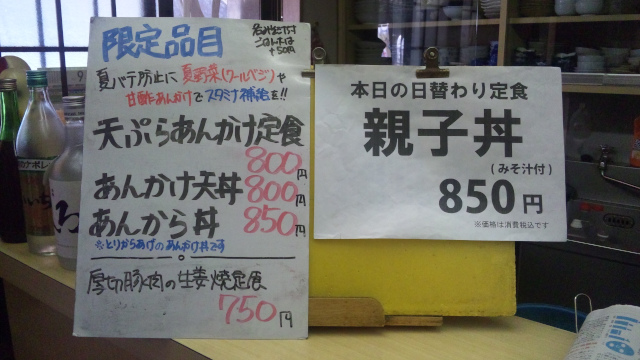 限定品目
ごはんは
+50円
夏バテ防止に夏野菜(クールベジ)や
甘酢あんかけでスタミナ補給を!!
天ぷらあんかけ定食
800円
あんかけ天丼 800円
あんから丼 850円
※とりからあげのあんかけ丼です
厚切豚肉の生姜焼定食
750円
本日の日替わり定食
親子丼
(みそ汁付)
850円
※価格は消費税込です